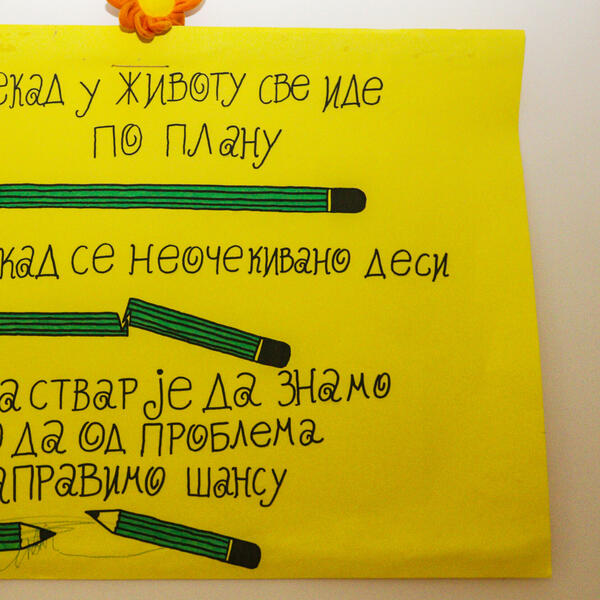 екад у животу све иде
по плану
кад се неочекивано деси
а ствар је да знамо
о да од проблема
аправимо шансу